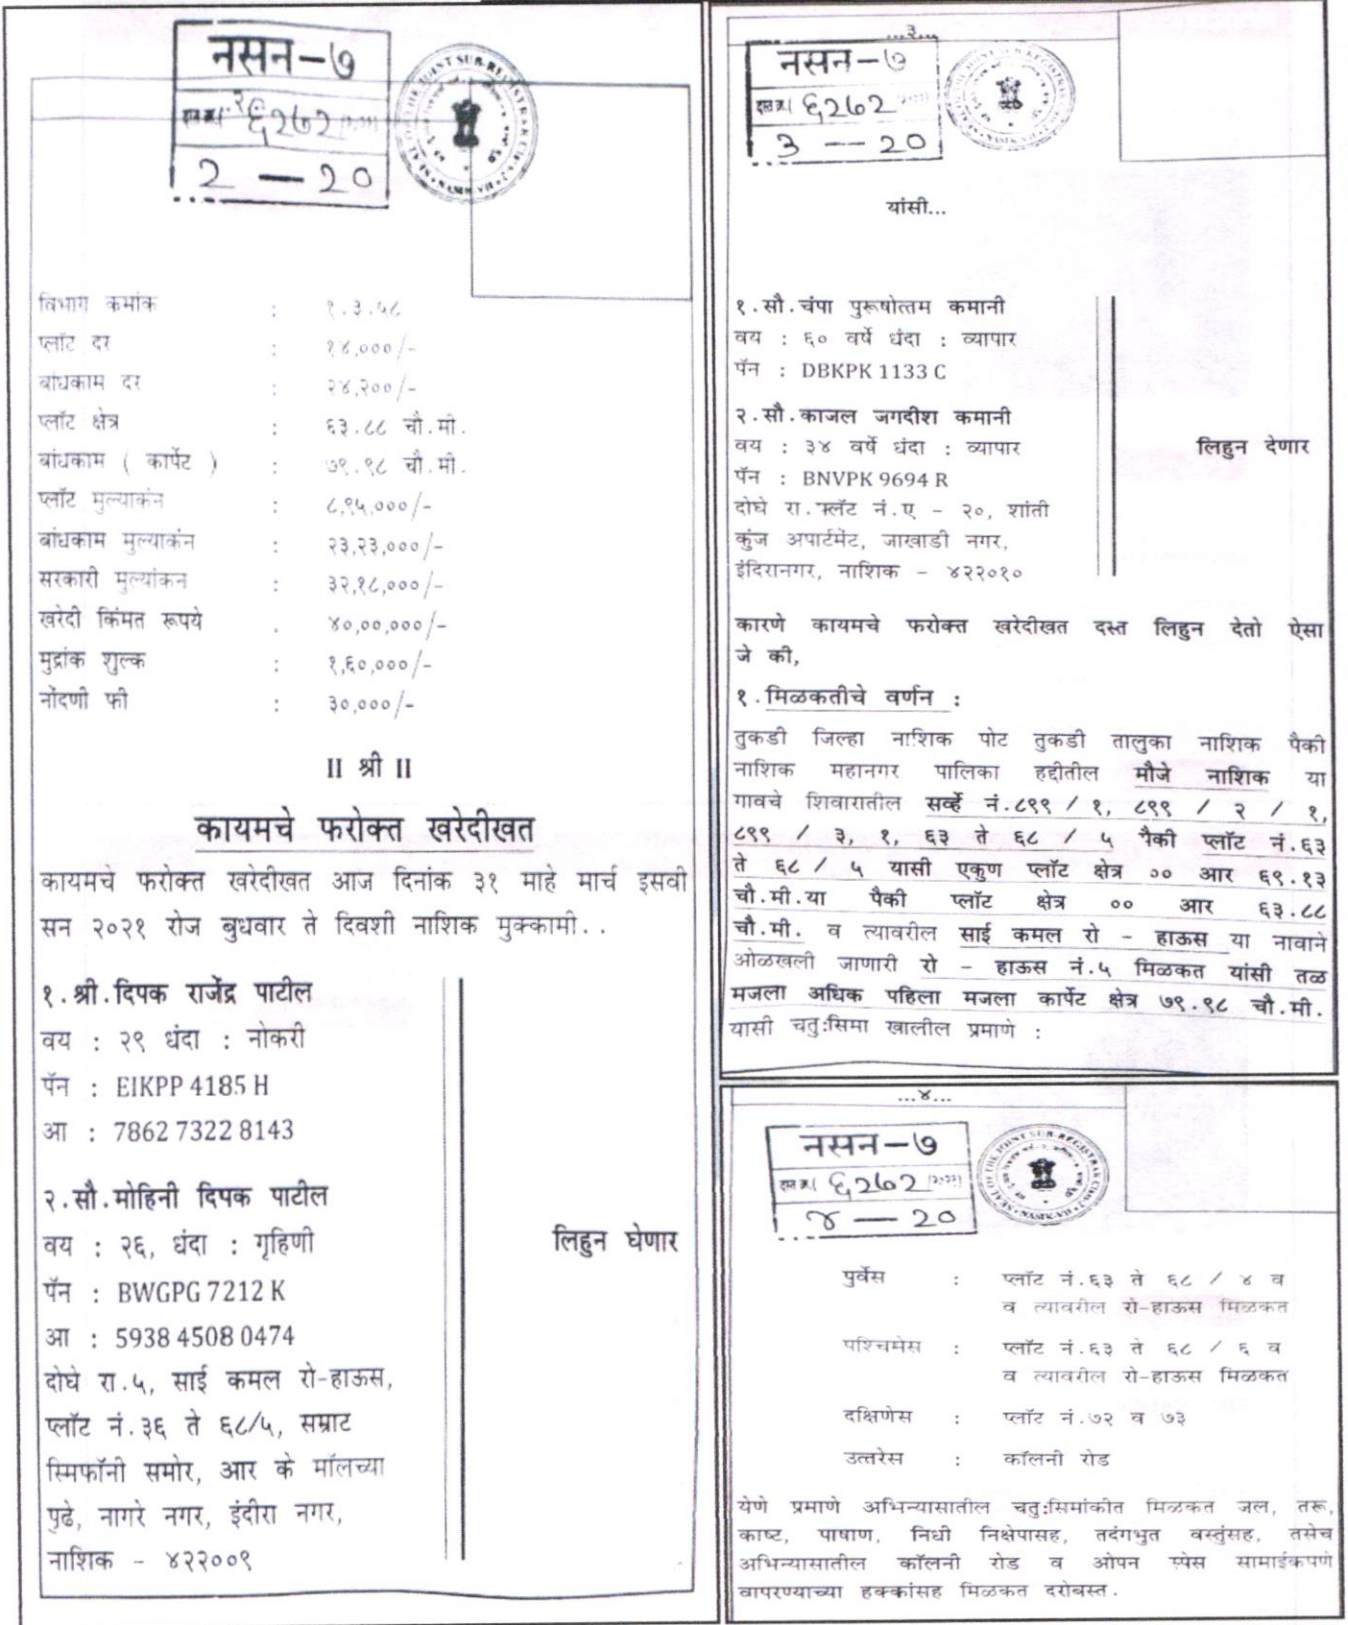 नसन-७
दस्त क्र. ६२७2
2 — 20
विभाग कमांक : १.३.५८
प्लॉट दर : १४,०००/-
बांधकाम दर : २४,२००/-
प्लॉट क्षेत्र : ६३.८८ चौ.मी.
बांधकाम ( कार्पेट ) : ७९.९८ चौ.मी.
प्लॉट मुल्याकंन : ८,९५,०००/-
बांधकाम मुल्याकंन : २३,२३,०००/-
सरकारी मुल्यांकन : ३२,१८,०००/-
खरेदी किंमत रूपये . ४०,००,०००/-
मुद्रांक शुल्क : १,६०,०००/-
नोंदणी फी : ३०,०००/-
II श्री II
कायमचे फरोक्त खरेदीखत
कायमचे फरोक्त खरेदीखत आज दिनांक ३१ माहे मार्च इसवी
सन २०२१ रोज बुधवार ते दिवशी नाशिक मुक्कामी..
१.श्री.दिपक राजेंद्र पाटील
वय : २९ धंदा : नोकरी
पॅन : EIKPP 4185 H
आ : 7862 7322 8143
२.सौ.मोहिनी दिपक पाटील
वय : २६, धंदा : गृहिणी
लिहुन घेणार
पॅन : BWGPG 7212 K
आ : 5938 4508 0474
दोघे रा.५, साई कमल रो-हाऊस,
प्लॉट नं.३६ ते ६८/५, सम्राट
स्मिफॉनी समोर, आर के मॉलच्या
पुढे, नागरे नगर, इंदीरा नगर,
नाशिक - ४२२००९
...३...
नसन-७
दस्त क्र. ६२७2
३ — 20
यांसी...
१.सौ.चंपा पुरूषोत्तम कमानी
वय : ६० वर्षे धंदा : व्यापार
पॅन : DBKPK 1133 C
२.सौ.काजल जगदीश कमानी
वय : ३४ वर्षे धंदा : व्यापार
लिहुन देणार
पॅन : BNVPK 9694 R
दोघे रा.फ्लॅट नं.ए - २०, शांती
कुंज अपार्टमेंट, जाखाडी नगर,
इंदिरानगर, नाशिक - ४२२०१०
कारणे कायमचे फरोक्त खरेदीखत दस्त लिहुन देतो ऐसा
जे की,
१.मिळकतीचे वर्णन :
तुकडी जिल्हा नाशिक पोट तुकडी तालुका नाशिक पैकी
नाशिक महानगर पालिका हद्दीतील मौजे नाशिक या
गावचे शिवारातील सर्व्हे नं.८९९ / १, ८९९ / २ / १,
८९९ / ३, १, ६३ ते ६८ / ५ पैकी प्लॉट नं.६३
ते ६८ / ५ यासी एकुण प्लॉट क्षेत्र ०० आर ६९.१३
चौ.मी.या पैकी प्लॉट क्षेत्र ०० आर ६३.८८
चौ.मी. व त्यावरील साई कमल रो - हाऊस या नावाने
ओळखली जाणारी रो - हाऊस नं.५ मिळकत यांसी तळ
मजला अधिक पहिला मजला कार्पेट क्षेत्र ७९.९८ चौ.मी.
यासी चतु:सिमा खालील प्रमाणे :
...४...
नसन-७
दस्त क्र. ६२७2
४ — 20
पुर्वेस : प्लॉट नं.६३ ते ६८ / ४ व
व त्यावरील रो-हाऊस मिळकत
पश्चिमेस : प्लॉट नं.६३ ते ६८ / ६ व
व त्यावरील रो-हाऊस मिळकत
दक्षिणेस : प्लॉट नं.७२ व ७३
उत्तरेस : कॉलनी रोड
येणे प्रमाणे अभिन्यासातील चतु:सिमांकीत मिळकत जल, तरू,
काष्ट, पाषाण, निधी निक्षेपासह, तदंगभुत वस्तुंसह, तसेच
अभिन्यासातील कॉलनी रोड व ओपन स्पेस सामाईकपणे
वापरण्याच्या हक्कांसह मिळकत दरोबस्त.